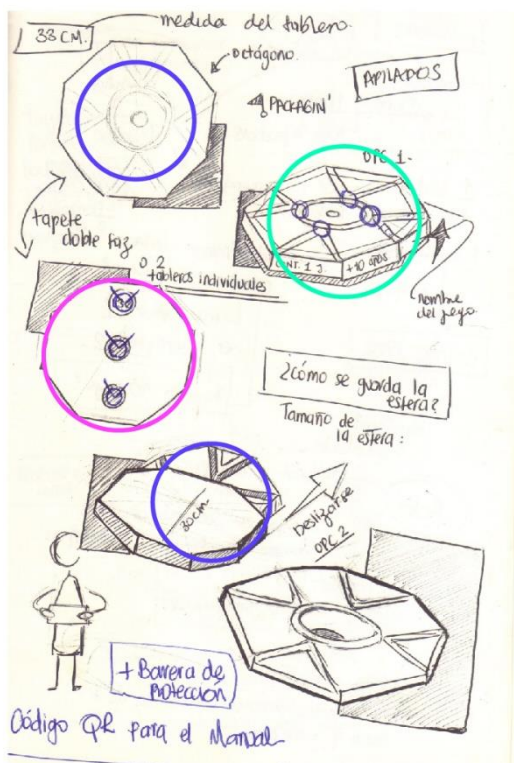 33 CM.
medida del tablero.
Octágono.
PACKAGIN'
APILADOS
OPC 1.
tapete
doble faz
o 2
tableros individuales
CONT. 1 J.
+10 AÑOS
nombre
del juego.
¿Cómo se guarda la
esfera?
Tamaño de
la esfera:
30cm.
Deslizarse
OPC. 2
+ Barrera de
Protección
Código QR para el Manual